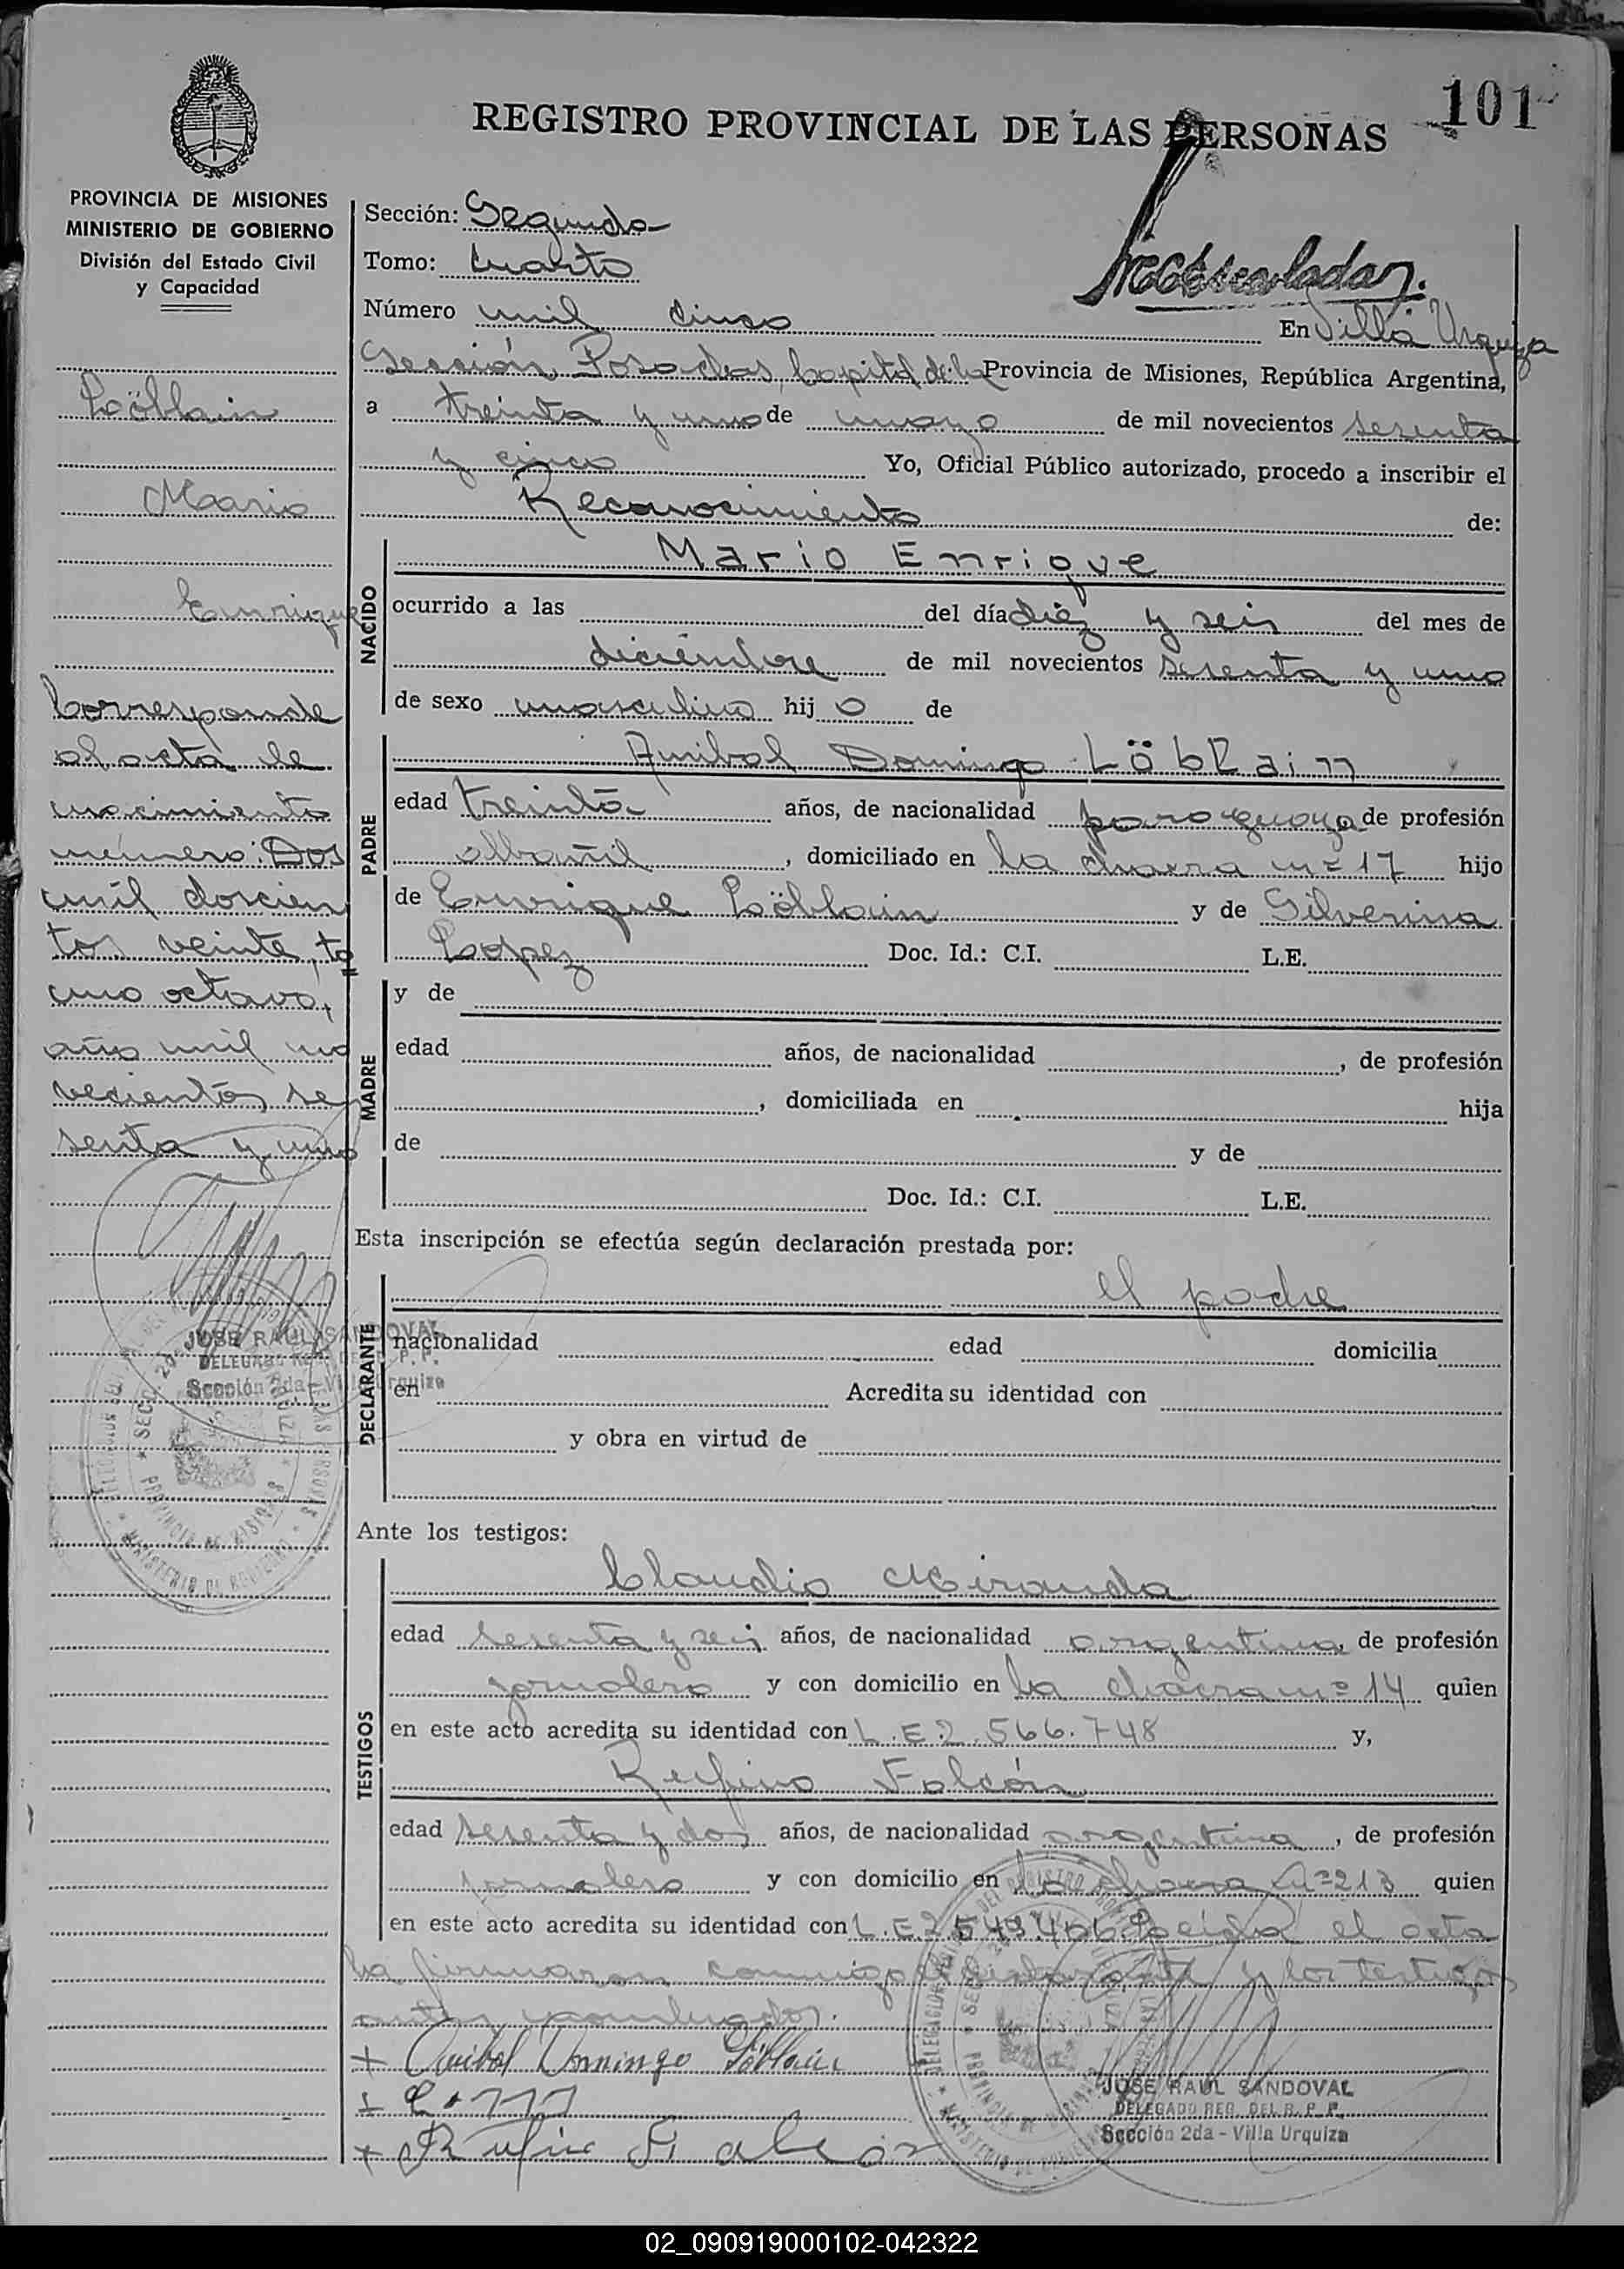 101
REGISTRO PROVINCIAL DE LAS PERSONAS
PROVINCIA DE MISIONES
MINISTERIO DE GOBIERNO
División del Estado Civil
y Capacidad
Sección: Segunda
Tomo: Cuarto
Número mil cinco En Villa Urquiza
Sección Posadas, Capital de la Provincia de Misiones, República Argentina,
a treinta y uno de mayo de mil novecientos sesenta
y cinco Yo, Oficial Público autorizado, procedo a inscribir el
Reconocimiento de:
Löblain
Mario
Enrique
Corresponde
al acta de
nacimiento
número: Dos
mil doscien
tos veinte, to
mo octavo,
año mil no
vecientos se
senta y uno
JOSE RAUL SANDOVAL
DELEGADO REG. DEL R. P. P.
Sección 2da - Villa Urquiza
NACIDO
Mario Enrique
ocurrido a las del día diez y seis del mes de
diciembre de mil novecientos sesenta y uno
de sexo masculino hijo de
PADRE
Anibal Domingo Löblain
edad treinta años, de nacionalidad paraguaya de profesión
albañil, domiciliado en la chacra nº 17 hijo
de Enrique Löblain y de Silverina
Lopez Doc. Id.: C.I. L.E.
MADRE
y de
edad años, de nacionalidad , de profesión
, domiciliada en hija
de y de
Doc. Id.: C.I. L.E.
Esta inscripción se efectúa según declaración prestada por:
DECLARANTE
el padre
nacionalidad edad domicilia
en Acredita su identidad con
y obra en virtud de
Ante los testigos:
TESTIGOS
Claudio Miranda
edad sesenta y seis años, de nacionalidad argentina, de profesión
jornalero y con domicilio en la chacra nº 14 quien
en este acto acredita su identidad con L.E.2.566.748 y,
Rufino Falcón
edad sesenta y dos años, de nacionalidad argentina, de profesión
jornalero y con domicilio en la chacra nº 213 quien
en este acto acredita su identidad con L.E.2.543.406. Leída el acta
la firmaron conmigo el declarante y los testigos
antes nombrados.
+ Anibal Domingo Löblain
+ C. M
+ Rufino Falcón
JOSE RAUL SANDOVAL
DELEGADO REG. DEL R. P. P.
Sección 2da - Villa Urquiza
02_090919000102-042322